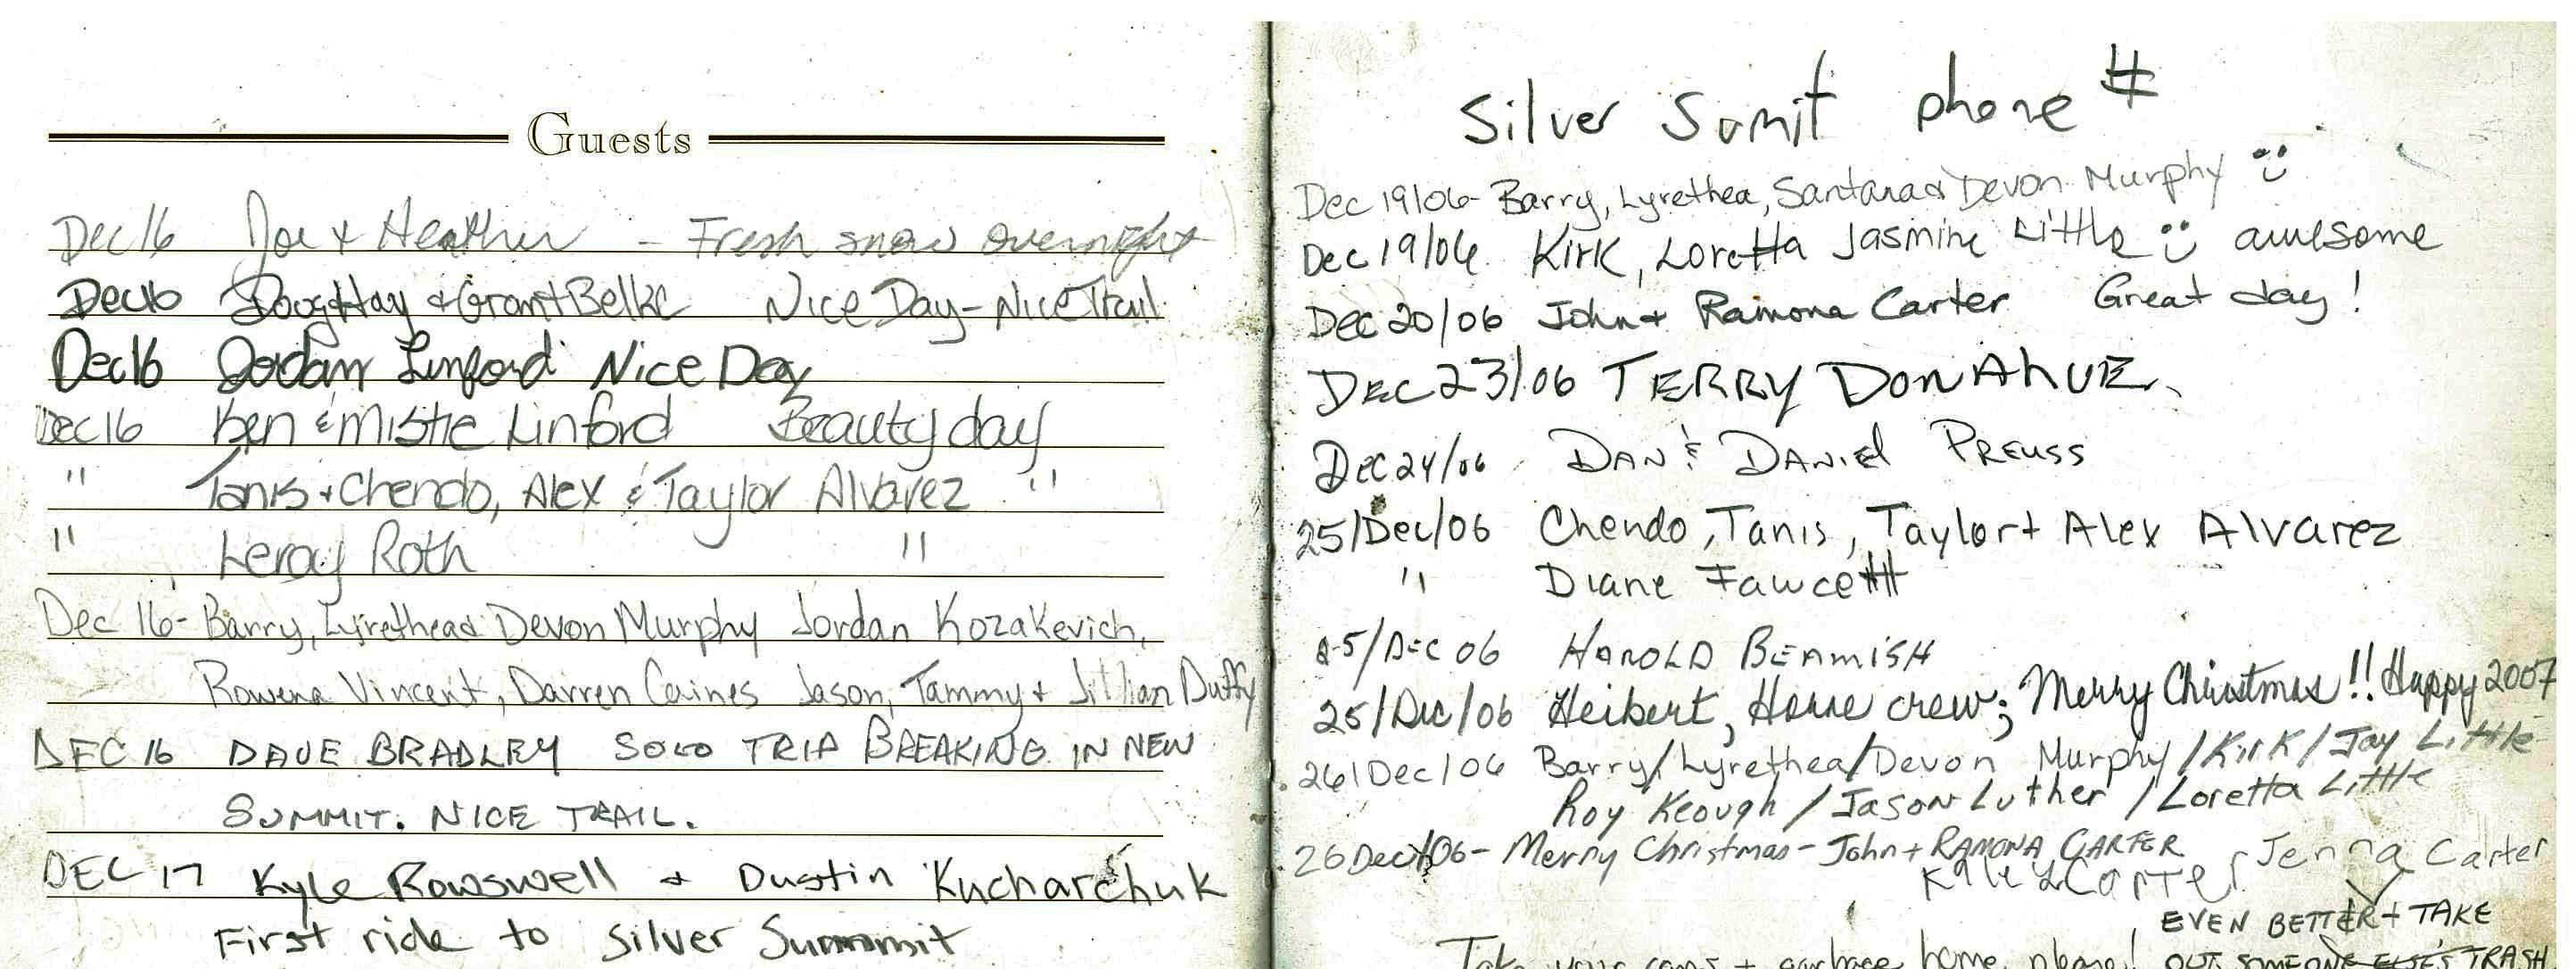 Guests
Dec 16 Joe + Heather - Fresh snow overnight
Dec 16 Doug Hay + Grant Belke Nice Day - Nice Trail
Dec 16 Jordan Linford Nice Day
Dec 16 Ken & Mistie Linford Beauty day
" Tanis + Chendo, Alex & Taylor Alvarez "
" Leroy Roth "
Dec 16 - Barry, Lyrethea & Devon Murphy Jordan Kozakevich,
Rowena Vincent, Darren Caines Jason, Tammy + Jillian Duffy
DEC 16 DAVE BRADLEY SOLO TRIP BREAKING IN NEW
SUMMIT. NICE TRAIL.
DEC 17 Kyle Rowswell + Dustin Kucharchuk
First ride to Silver Summit
Silver Sumit phone #
Dec 19/06 - Barry, Lyrethea, Santana & Devon Murphy
Dec 19/06 Kirk, Loretta Jasmine Little awesome
Dec 20/06 John + Ramona Carter Great day!
DEC 23/06 TERRY DONAHUE
Dec 24/06 DAN & DANIEL PREUSS
25/Dec/06 Chendo, Tanis, Taylor + Alex Alvarez
" Diane Fawcett
25/DEC 06 HAROLD BEAMISH
25/Dec/06 Heibert, crew; Merry Christmas!! Happy 2007
26/Dec/06 Barry/Lyrethea/Devon Murphy/Kirk/Jay Little
Roy Keough / Jason Luther / Loretta Little
26 Dec/06 - Merry Christmas - John + RAMONA CARTER Jenna Carter
Carter
EVEN BETTER + TAKE
Take your cans + garbage home, please! OUT SOMEONE ELSE'S TRASH